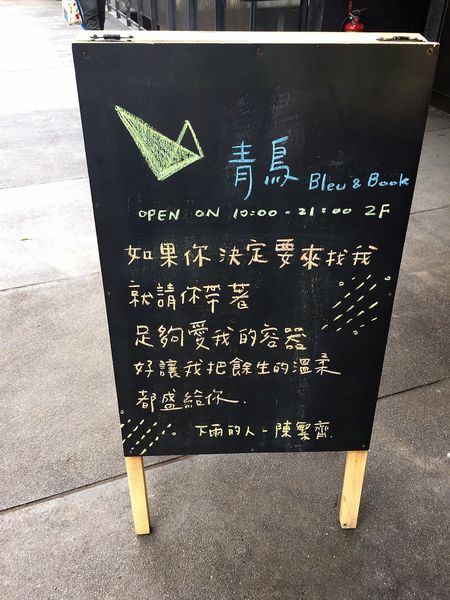 青鳥 Bleu & Book
OPEN ON 10:00 - 21:00 2F
如果你決定要來找我
就請你帶著
足夠愛我的容器
好讓我把餘生的溫柔
都盛給你.
下雨的人 - 陳繁齊